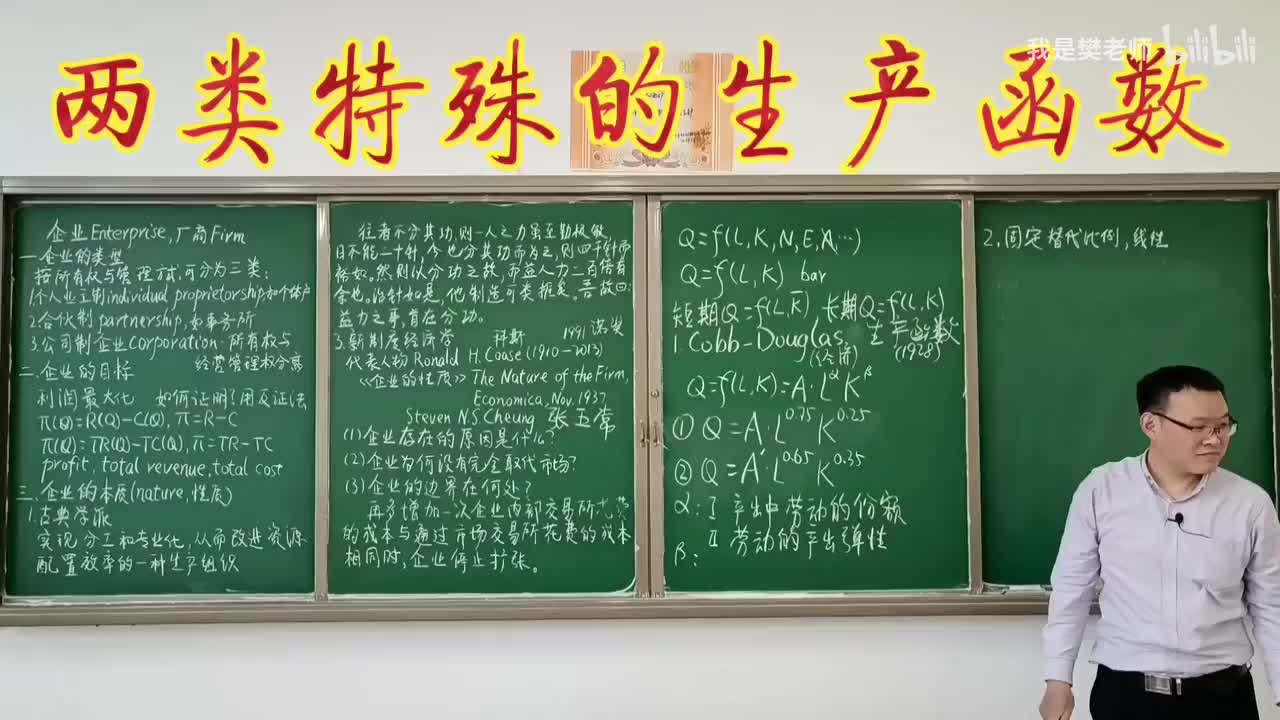 我是樊老师 bilibili
两类特殊的生产函数
企业Enterprise,厂商Firm
一.企业的类型
按所有权与管理方式,可分为三类:
1.个人业主制individual proprietorship,如个体户
2.合伙制partnership,如事务所
3.公司制企业corporation:所有权与
经营管理权分离
二.企业的目标
利润最大化 如何证明?用反证法
π(Q)=R(Q)-C(Q),π=R-C
π(Q)=TR(Q)-TC(Q),π=TR-TC
profit,total revenue,total cost
三.企业的本质(nature,性质)
1.古典学派
实现分工和专业化,从而改进资源
配置效率的一种生产组织
往者不分其功,则一人之力虽至勤极敏
日不能二十针,今也分其功而为之,则四千针而
裕如。然则以分功之故,而益人力二百倍有
余也。治针如是,他制造可类推矣。吾故曰:
益力之事,首在分功。
3.新制度经济学 科斯 1991诺奖
代表人物Ronald H.Coase(1910-2013)
《企业的性质》The Nature of the Firm,
Economica,Nov.1937
Steven N.S.Cheung 张五常
(1)企业存在的原因是什么?
(2)企业为何没有完全取代市场?
(3)企业的边界在何处?
再多增加一次企业内部交易所花费
的成本与通过市场交易所花费的成本
相同时,企业停止扩张。
Q=f(L,K,N,E,A,…)
Q=f(L,K) bar
短期Q=f(L,K̄) 长期Q=f(L,K)
1.Cobb-Douglas 生产函数
(经济) (1928)
Q=f(L,K)=A·L^αK^β
①Q=A·L^0.75K^0.25
②Q=A'·L^0.65K^0.35
α:Ⅰ产出中劳动的份额
Ⅱ劳动的产出弹性
β:
2.固定替代比例,线性